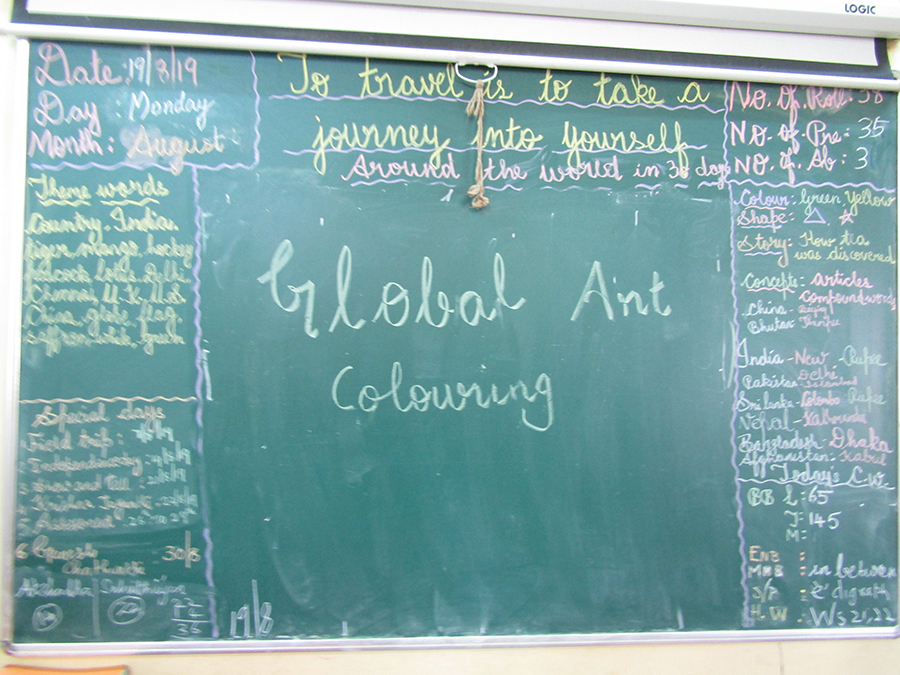 LOGIC
Date: 19/8/19
Day : Monday
Month: August
To travel is to take a
journey into yourself
Around the world in 30 days
No. Of. Roll: 38
No. of. Pre: 35
No. of. Ab: 3
Theme words
Country, India,
tiger, mango, hockey
Peacock, lotus, Delhi
Chennai, U.K, U.S
China, globe, flag,
saffron, white, green
Special days
Field trip:
Independence day
Show and Tell
6 Ganesh 30/8
Chathurthi
Global Art
Colouring
19/8
Colour: Green Yellow
Shape:
Story: How tea
was discovered
Concepts: articles
Compound words
China -
Bhutan -
India - New - Rupee
Delhi
Pakistan - Islamabad
Sri lanka - Colombo Rupee
Nepal - Kathmandu
Bangladesh - Dhaka
Afghanistan - Kabul
Today's C.w.
BB L: 65
T: 145
M:
ENB :
MNB : in between
S/P : e digraph
H.W : Ws 21,22